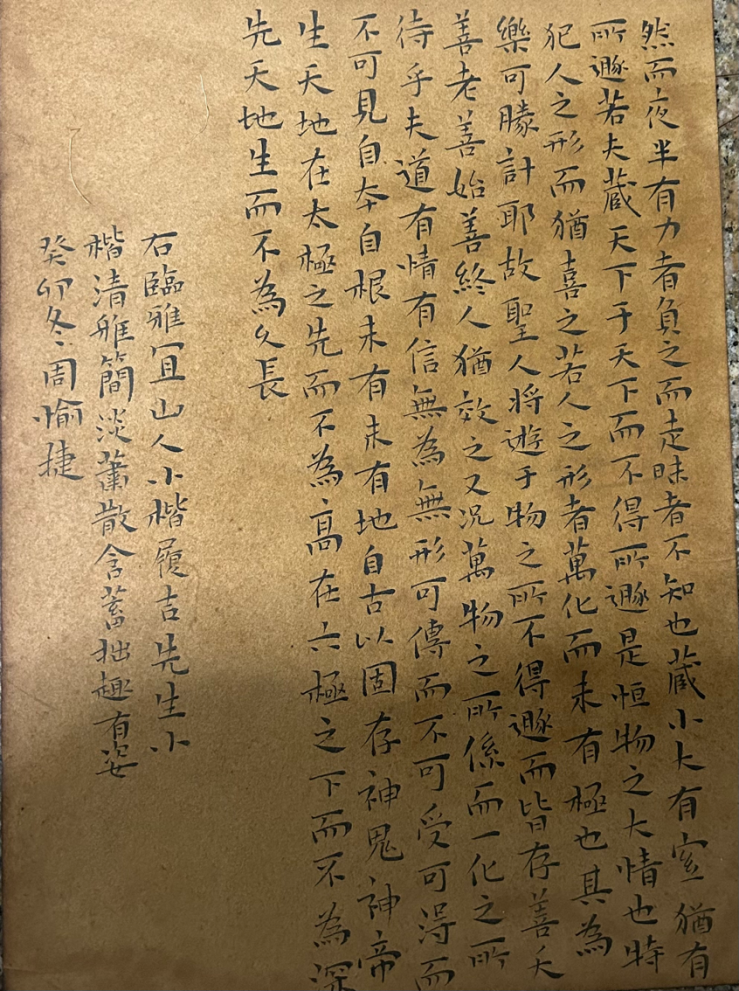 然而夜半有力者負之而走昧者不知也藏小大有宜猶有
所遯若夫藏天下于天下而不得所遯是恒物之大情也特
犯人之形而猶喜之若人之形者萬化而未有極也其為
樂可勝計耶故聖人將遊于物之所不得遯而皆存善夭
善老善始善終人猶效之又況萬物之所係而一化之所
待乎夫道有情有信無為無形可傳而不可受可得而
不可見自本自根未有未有地自古以固存神鬼神帝
生天地在太極之先而不為高在六極之下而不為深
先天地生而不為久長
右臨雅宜山人小楷履吉先生小
楷清雅簡淡蕭散含蓄拙趣有姿
癸卯冬月周愉捷